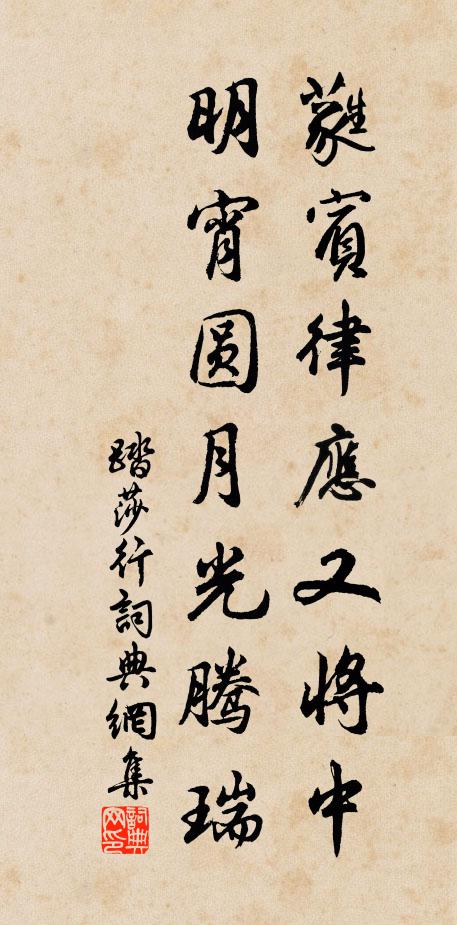 蕤賓律應又將中
明宵圓月光騰瑞
踏莎行詞典網集
詞典網印